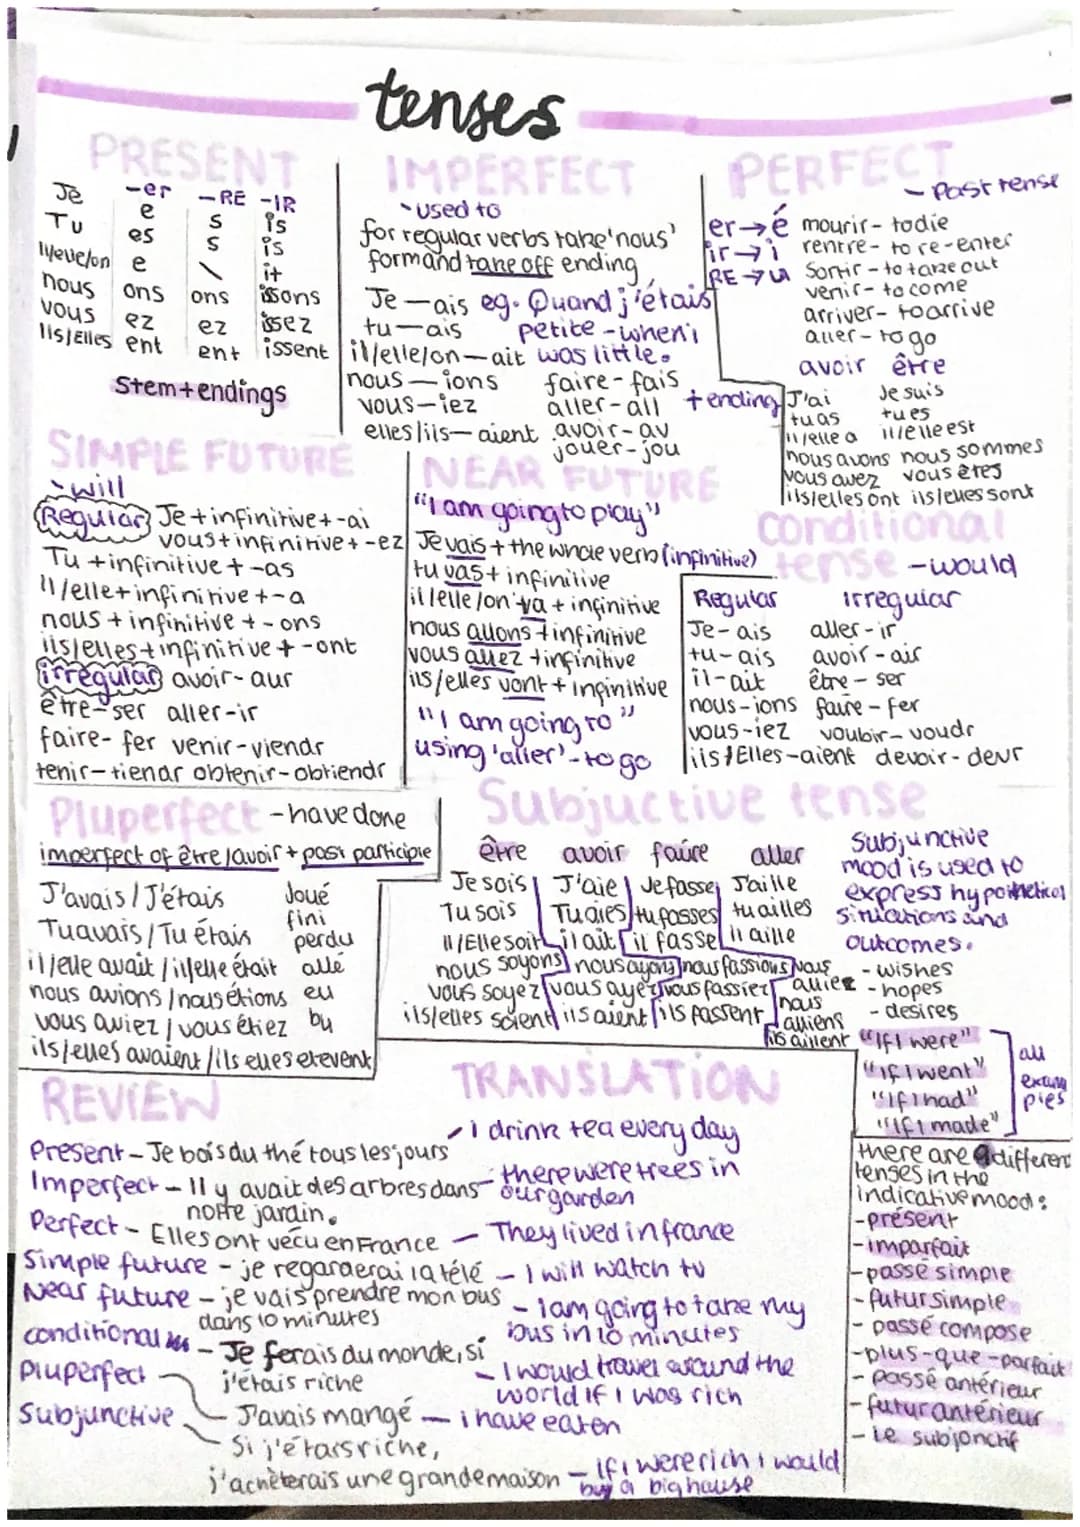 tenses
PRESENT
Je -er -RE -IR
e s is
Tu es s is
Il/elle/on e \ it
nous ons ons issons
vous ez ez issez
Ils/Elles ent ent issent
Stem+endings
IMPERFECT
-used to
for regular verbs take 'nous'
form and take off ending
Je —ais eg. Quand j'étais
tu —ais petite -when i
il/elle/on—ait was little.
nous —ions faire-fais
vous—iez aller-all
elles/ils—aient avoir-av
jouer-jou
PERFECT
- Past tense
er→é mourir- to die
ir→i rentre- to re-enter
RE→u Sortir-to take out
venir- to come
arriver- to arrive
aller-to go
avoir être
+ending J'ai Je suis
tu as tu es
il/elle a il/elle est
nous avons nous sommes
vous avez vous êtes
ils/elles ont ils/elles sont
SIMPLE FUTURE
-will
Regular Je+infinitive+-ai
vous+infinitive+-ez
Tu +infinitive+-as
Il/elle+infinitive+-a
nous +infinitive +-ons
ils/elles+infinitive+-ont
irregular avoir-aur
être-ser aller-ir
faire-fer venir-viendr
tenir-tiendr obtenir-obtiendr
NEAR FUTURE
"I am going to play"
Je vais + the whole verb (infinitive)
tu vas+ infinitive
il/elle/on va + infinitive
nous allons +infinitive
vous allez +infinitive
ils/elles vont + infinitive
"I am going to"
using 'aller'-to go
conditional
tense -would
Regular irregular
Je- ais aller-ir
tu- ais avoir-air
il-ait être - ser
nous-ions faire-fer
vous-iez voubir-voudr
ils/Elles-aient devoir-devr
Pluperfect -have done
imperfect of être/avoir+past participle
J'avais/J'étais Joué
fini
Tu avais/Tu étais perdu
il/elle avait/il/elle était allé
nous avions/nous étions eu
vous aviez/vous étiez bu
ils/elles avaient/ils elles etevent
Subjuctive tense
être avoir faire aller
Je sois J'aie Je fasse J'aille
Tu sois Tu aies tu fasses tu ailles
Il/Elle soit il ait il fasse il aille
nous soyons nous ayons nous fassions vous
vous soyez vous ayez vous fassiez alliez
ils/elles soient ils aient ils fassent nous
alliens
ils aillent
Subjunctive
mood is used to
express hypothetical
situations and
outcomes.
- wishes
- hopes
- desires
"If I were"
"if I went"
"If I had"
"If I made"
all
exam
ples
REVIEW
TRANSLATION
Present-Je bois du thé tous les jours -I drink tea every day
Imperfect-Il y avait des arbres dans - there were trees in
notre jardin. our garden
Perfect- Elles ont vécu en France - They lived in france
Simple future -je regarderai la télé - I will watch tv
Near future - je vais prendre mon bus - I am going to take my
dans 10 minutes bus in 10 minutes
conditional - Je ferais du monde, si - I would travel around the
j'étais riche world if I was rich
Pluperfect - J'avais mangé - i have eaten
Subjunctive - Si j'étais riche,
j'achèterais une grande maison - If i were rich I would
buy a big house
there are 9 different
tenses in the
indicative mood:
-présent
-imparfait
-passé simple
-futur simple
- passé compose
-plus-que-parfait
- passé antérieur
-futur antérieur
- Le subjonctif